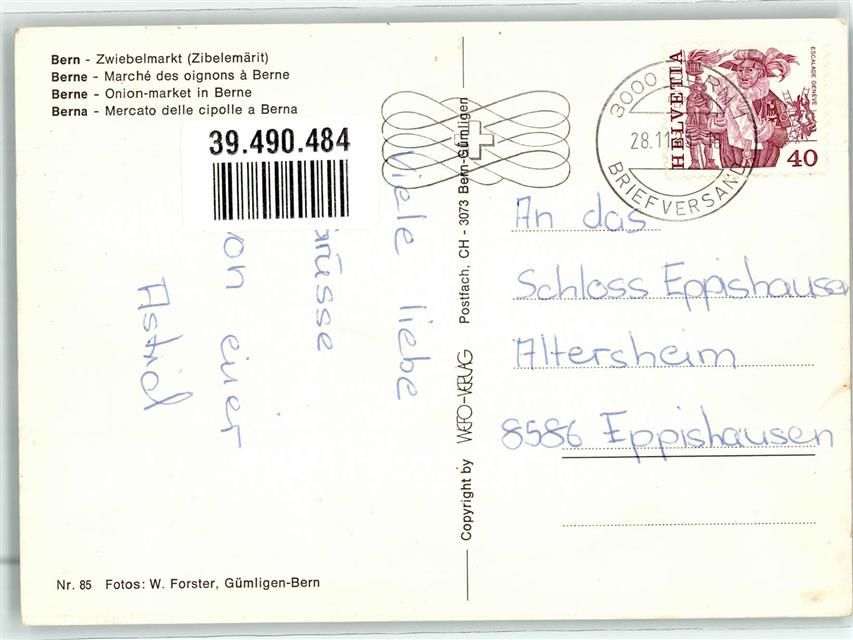 Bern - Zwiebelmarkt (Zibelemärit)
Berne - Marché des oignons à Berne
Berne - Onion-market in Berne
Berna - Mercato delle cipolle a Berna
39.490.484
Viele liebe
Grüsse
von einer
Astrid
Nr. 85 Fotos: W. Forster, Gümligen-Bern
Copyright by WEFO-VERLAG Postfach, CH - 3073 Bern-Gümligen
3000
28.11
BRIEFVERSAND
HELVETIA
ESCALADE GENÈVE
40
An das
Schloss Eppishausen
Altersheim
8586 Eppishausen